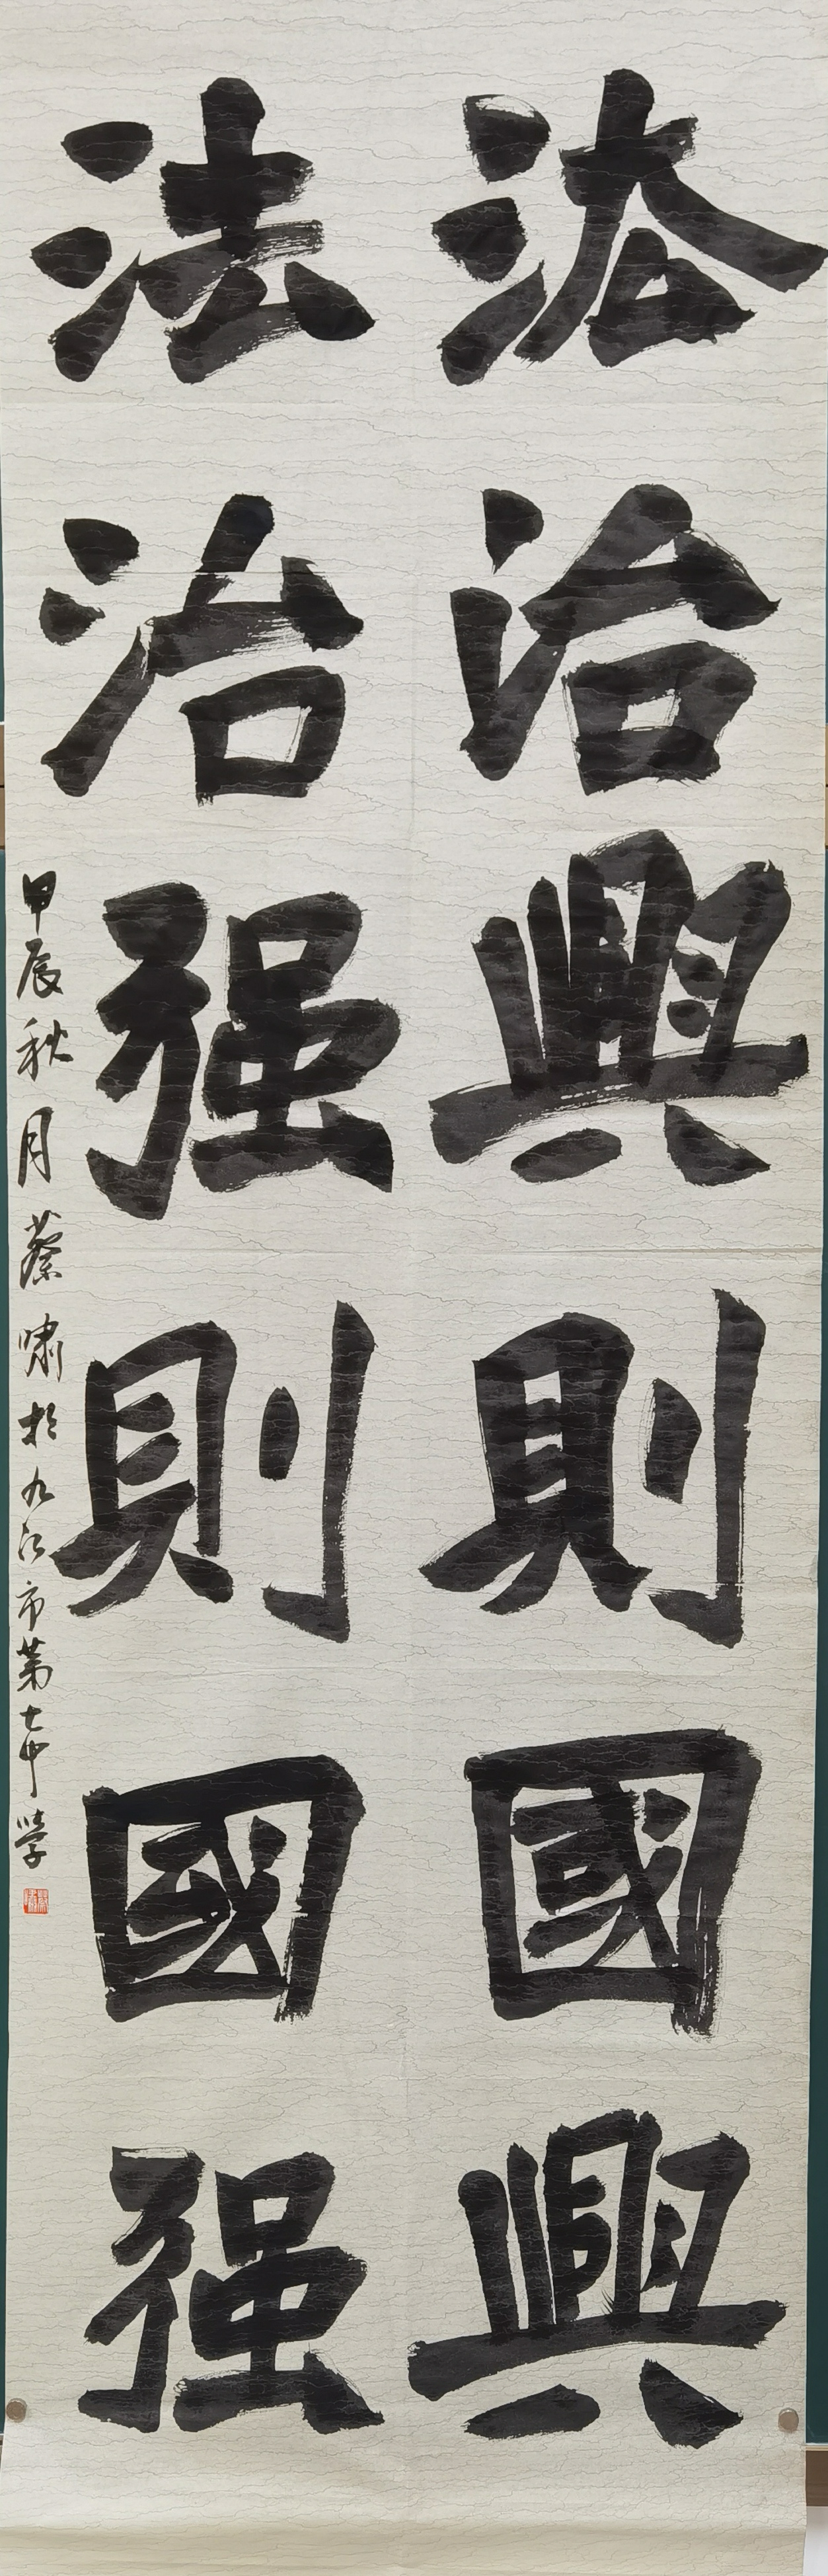 法治興則國興
法治强則國强
甲辰秋月蔡嘯於九江市第七中學